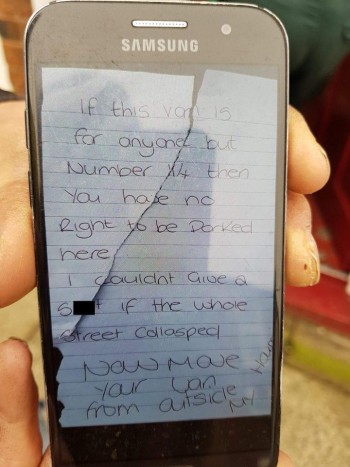 SAMSUNG
If this van is
for anyone but
Number 14 then
You have no
Right to be Parked
here
I couldnt Give a
S t if the whole
Street Collasped
Now Move
Your Van
from outside
My House